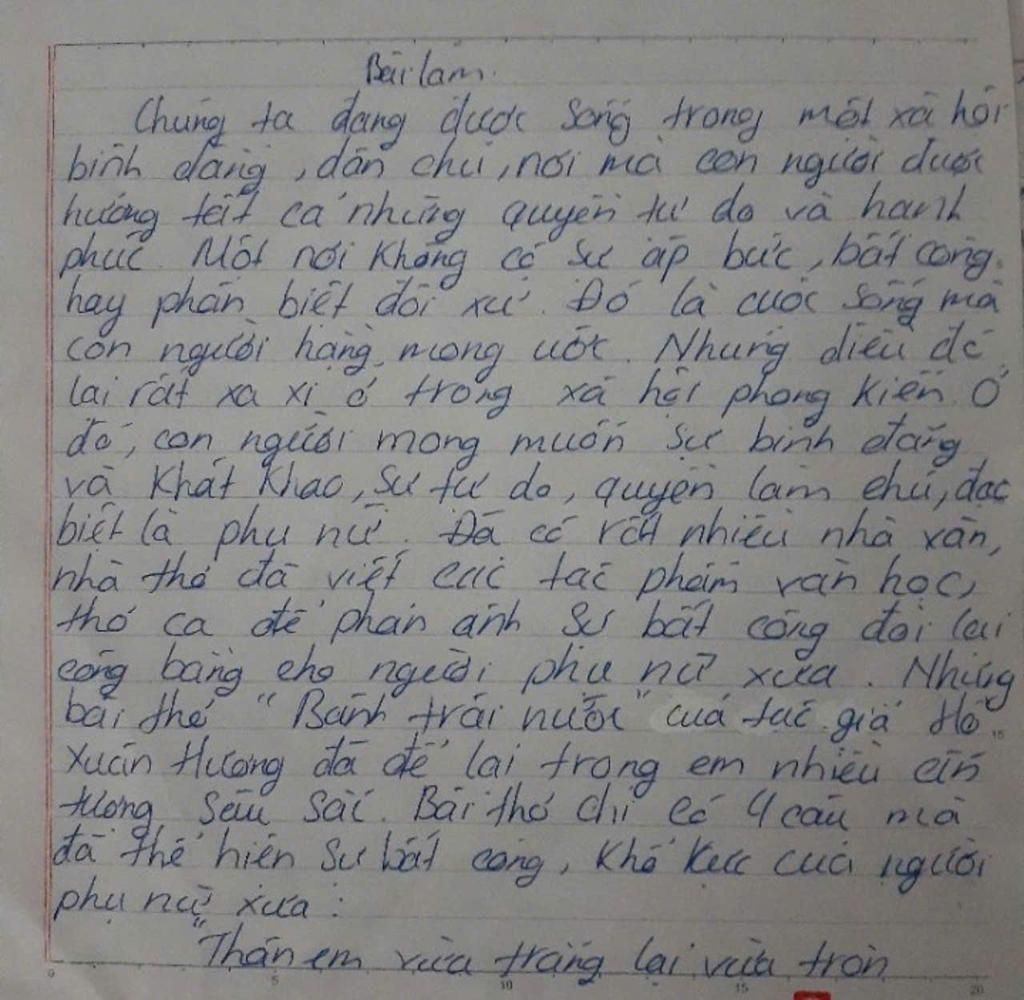 Bài làm.
Chúng ta đang được sống trong một xã hội
bình đẳng, dân chủ, nơi mà con người được
hưởng tất cả những quyền tự do và hạnh
phúc. Một nơi không có sự áp bức, bất công
hay phân biệt đối xử. Đó là cuộc sống mà
con người hằng mong ước. Nhưng điều đó
lại rất xa xỉ ở trong xã hội phong kiến. Ở
đó, con người mong muốn sự bình đẳng
và khát khao, sự tự do, quyền làm chủ, đặc
biệt là phụ nữ. Đã có rất nhiều nhà văn,
nhà thơ đã viết các tác phẩm văn học,
thơ ca để phản ánh sự bất công đòi lại
công bằng cho người phụ nữ xưa. Nhưng
bài thơ "Bánh trôi nước" của tác giả Hồ
Xuân Hương đã để lại trong em nhiều ấn
tượng sâu sắc. Bài thơ chỉ có 4 câu mà
đã thể hiện sự bất công, khổ cực của người
phụ nữ xưa:
"Thân em vừa trắng lại vừa tròn
0 5 10 15 20
15